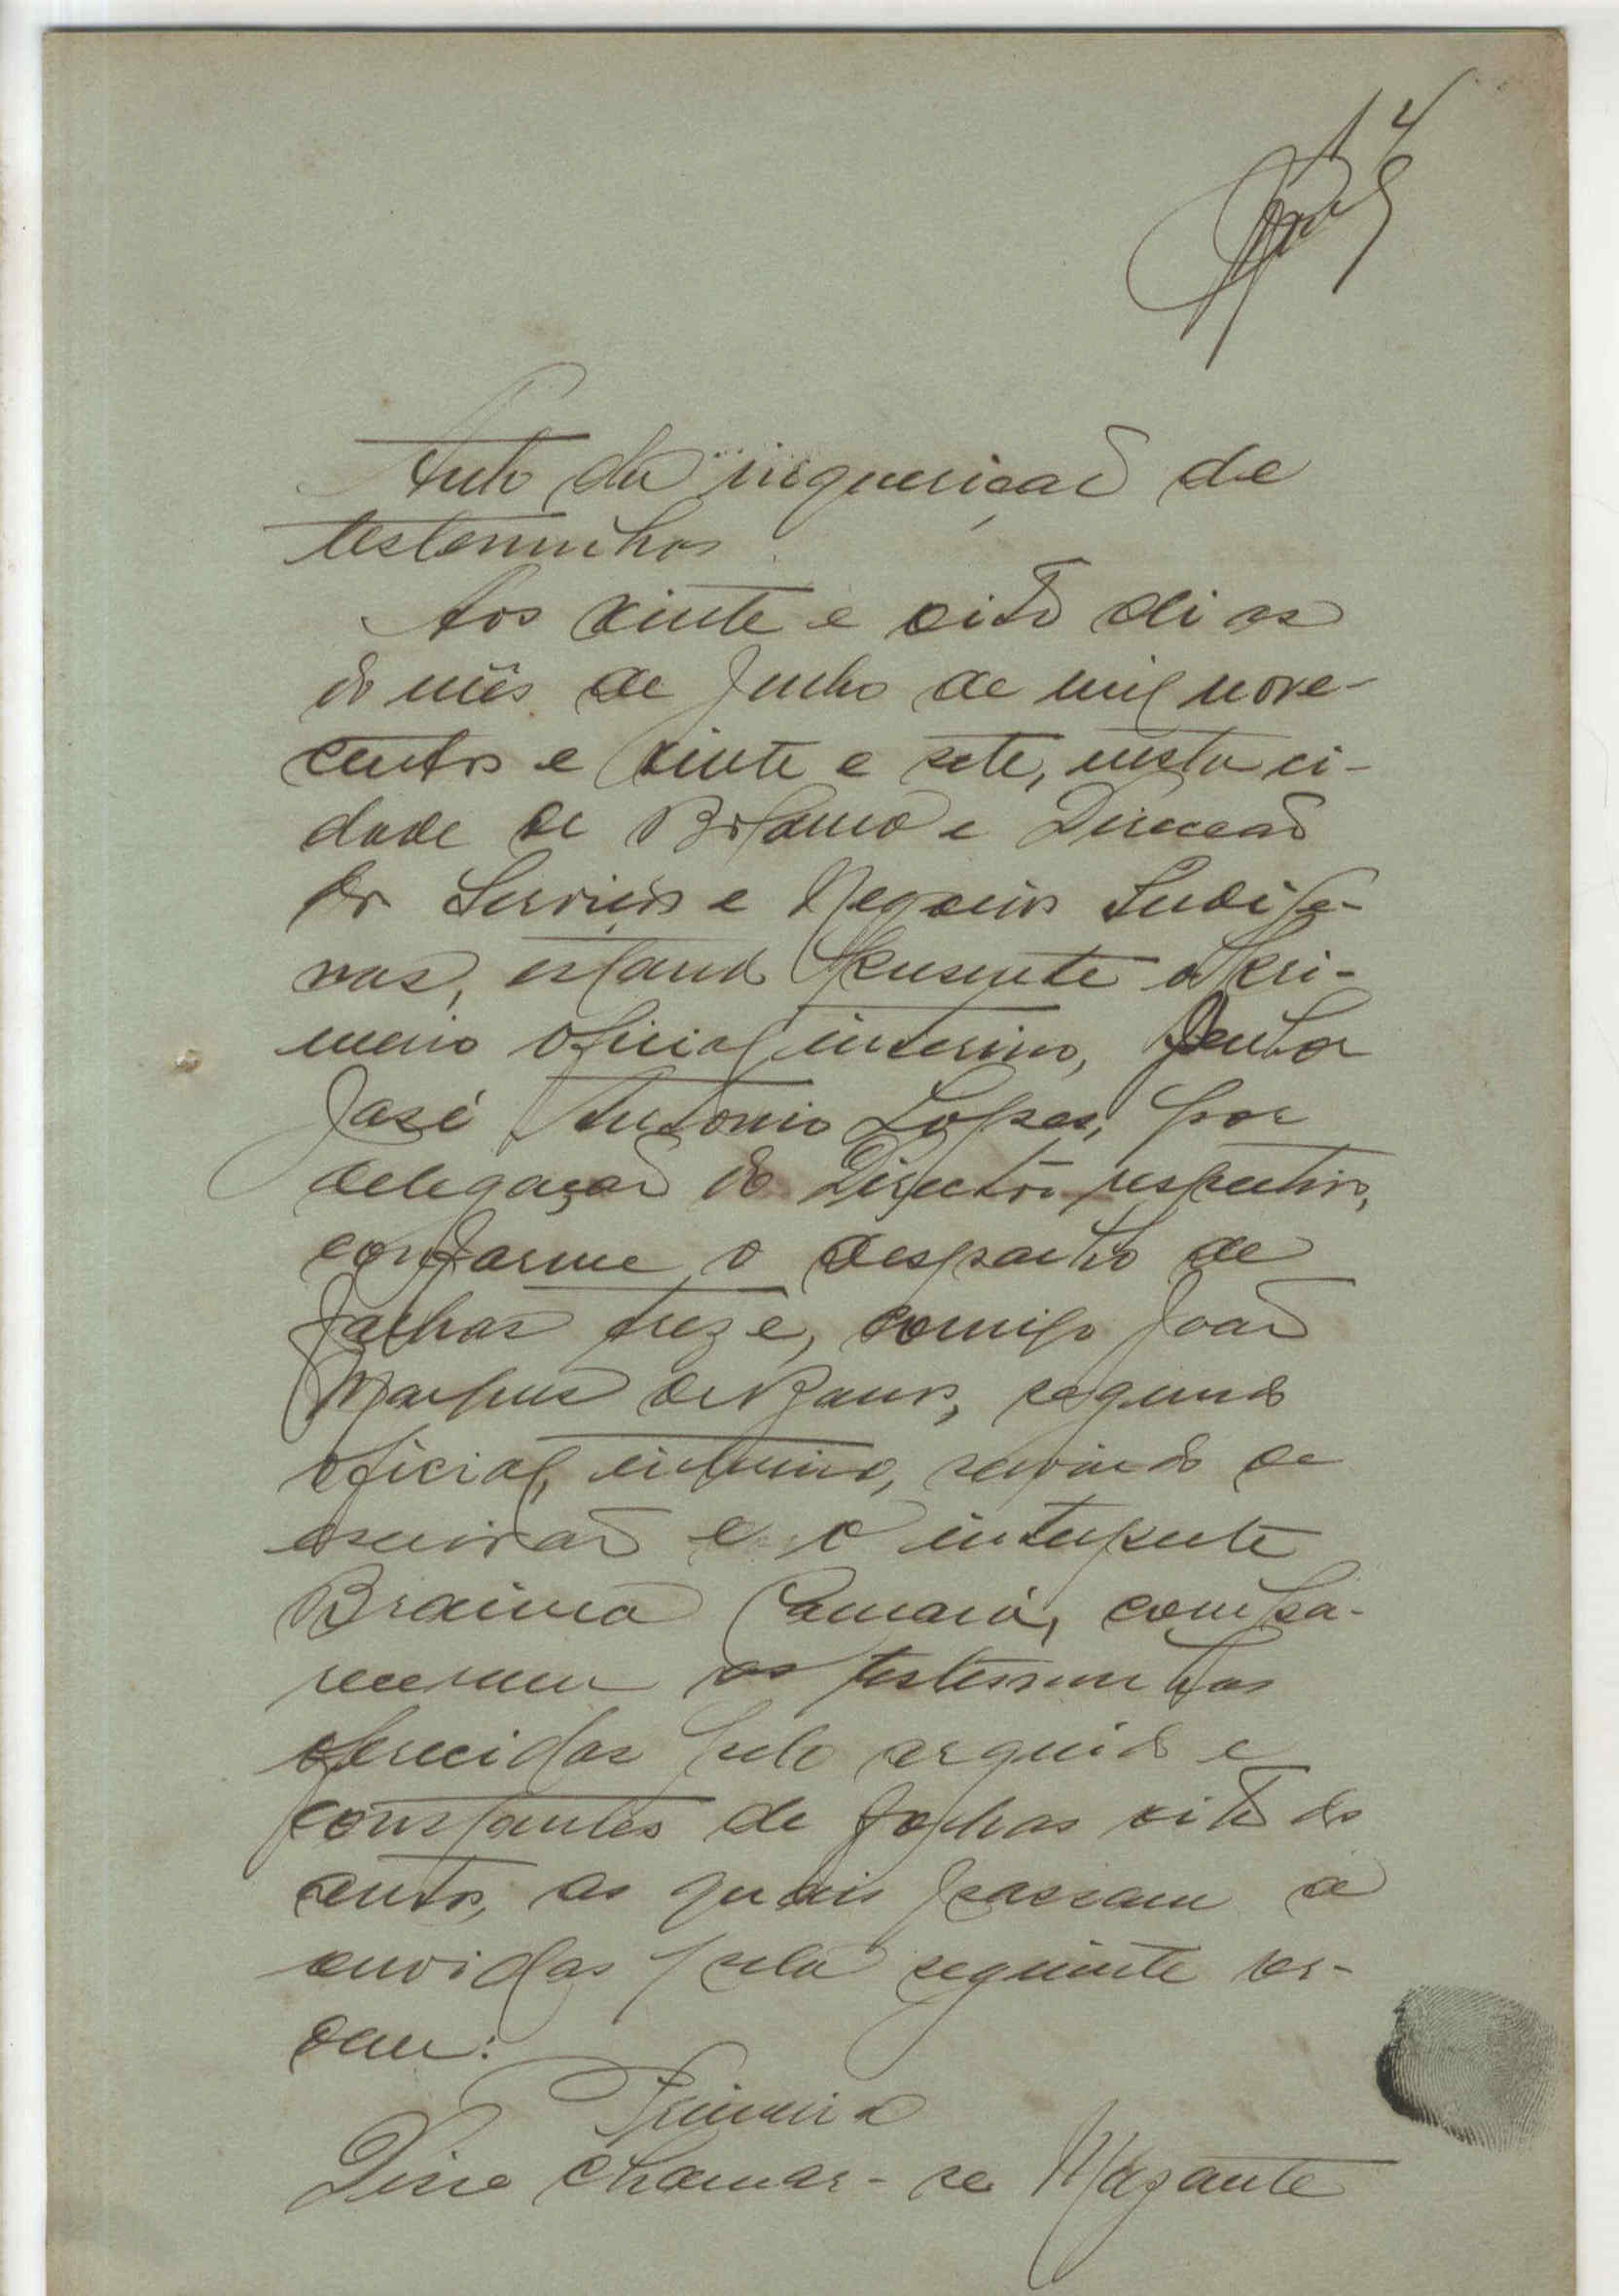 14
Auto da inquerição de
testemunhas
Aos vinte e oito dias
do mês de Junho de mil nove-
centos e vinte e sete, nesta ci-
dade de Bolama e Direcção
dos Serviços e Negocios Indige-
nas, estando presente o pri-
meiro oficial interino, Senhor
José Antonio Lopes, por
delegação do Director respectivo,
conforme o despacho de
folhas treze, comigo João
Marques de Barros, segundo
oficial, interino, servindo de
escrivão e o interprete
Braima Camará, compa-
receram as testemunhas
oferecidas pelo arguido e
constantes de folhas oito dos
autos, as quais passam a
ouvidas pela seguinte or-
dem:
Primeira
Disse chamar-se